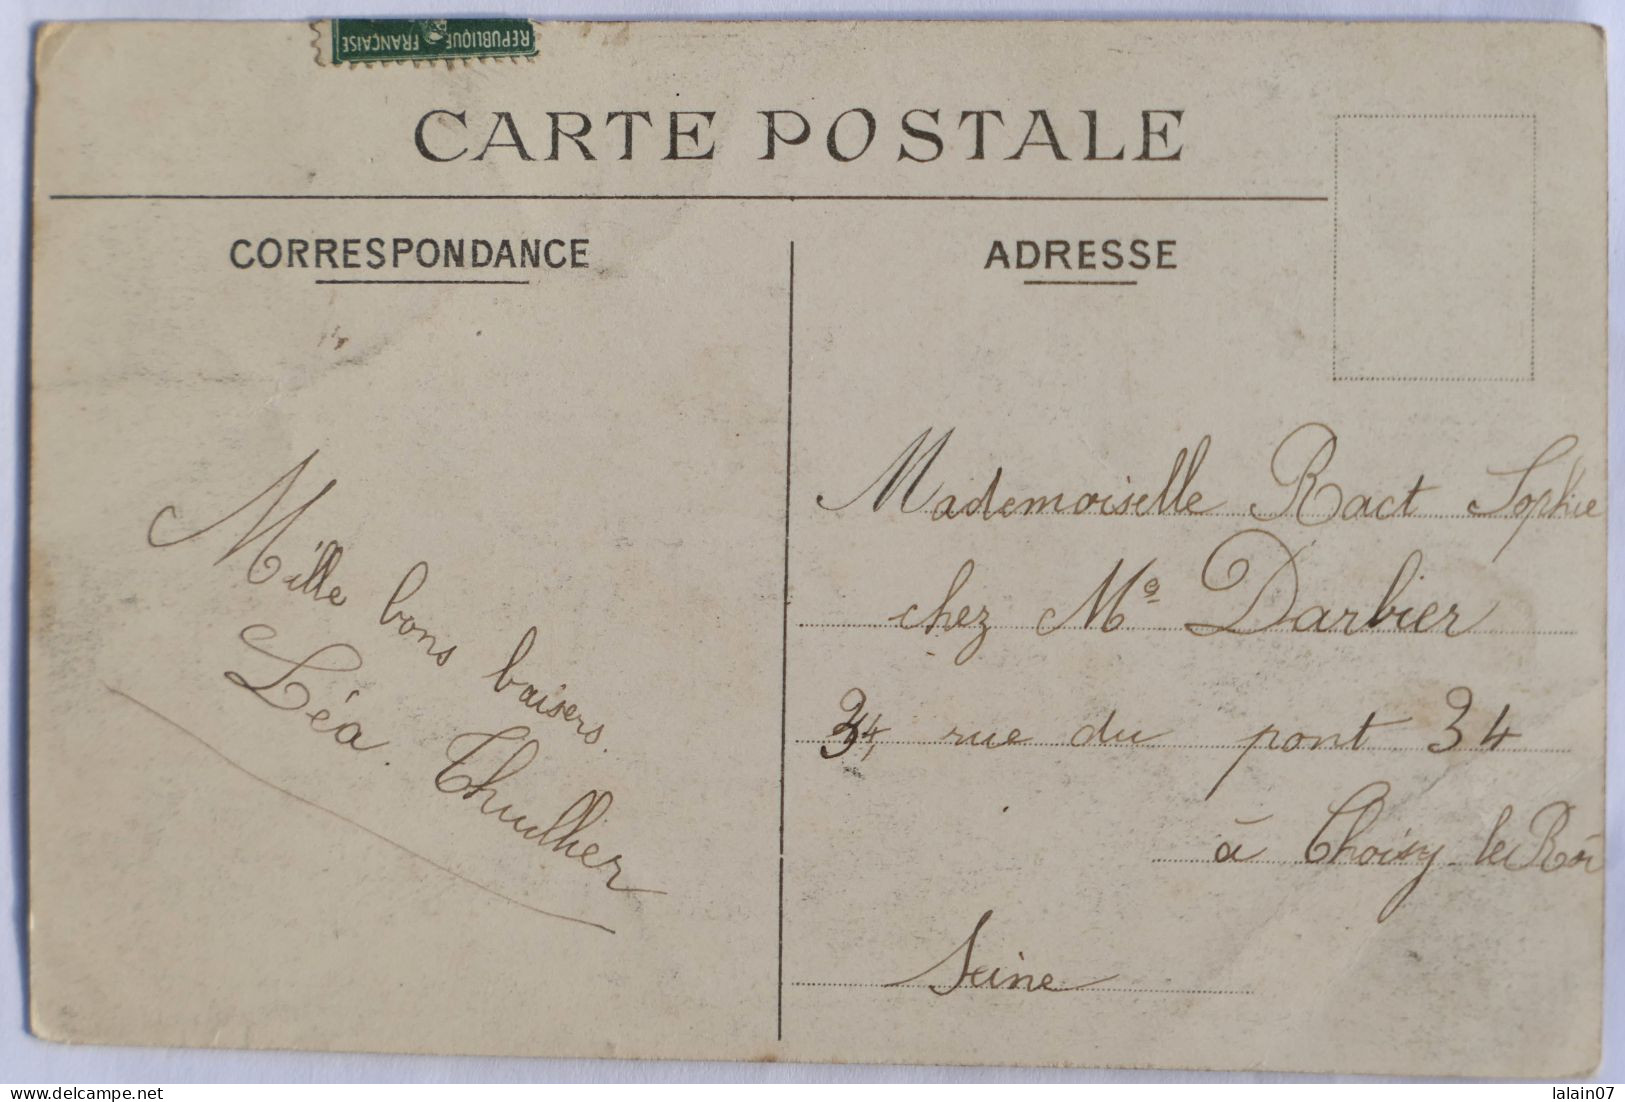 REPUBLIQUE FRANÇAISE
CARTE POSTALE
CORRESPONDANCE
ADRESSE
Mille bons baisers.
Léa Thuillier
Mademoiselle Ract Sophie
chez Me Darbier
34, rue du pont 34
à Choisy-le-Roi
Seine
delcampe.net
lalain07